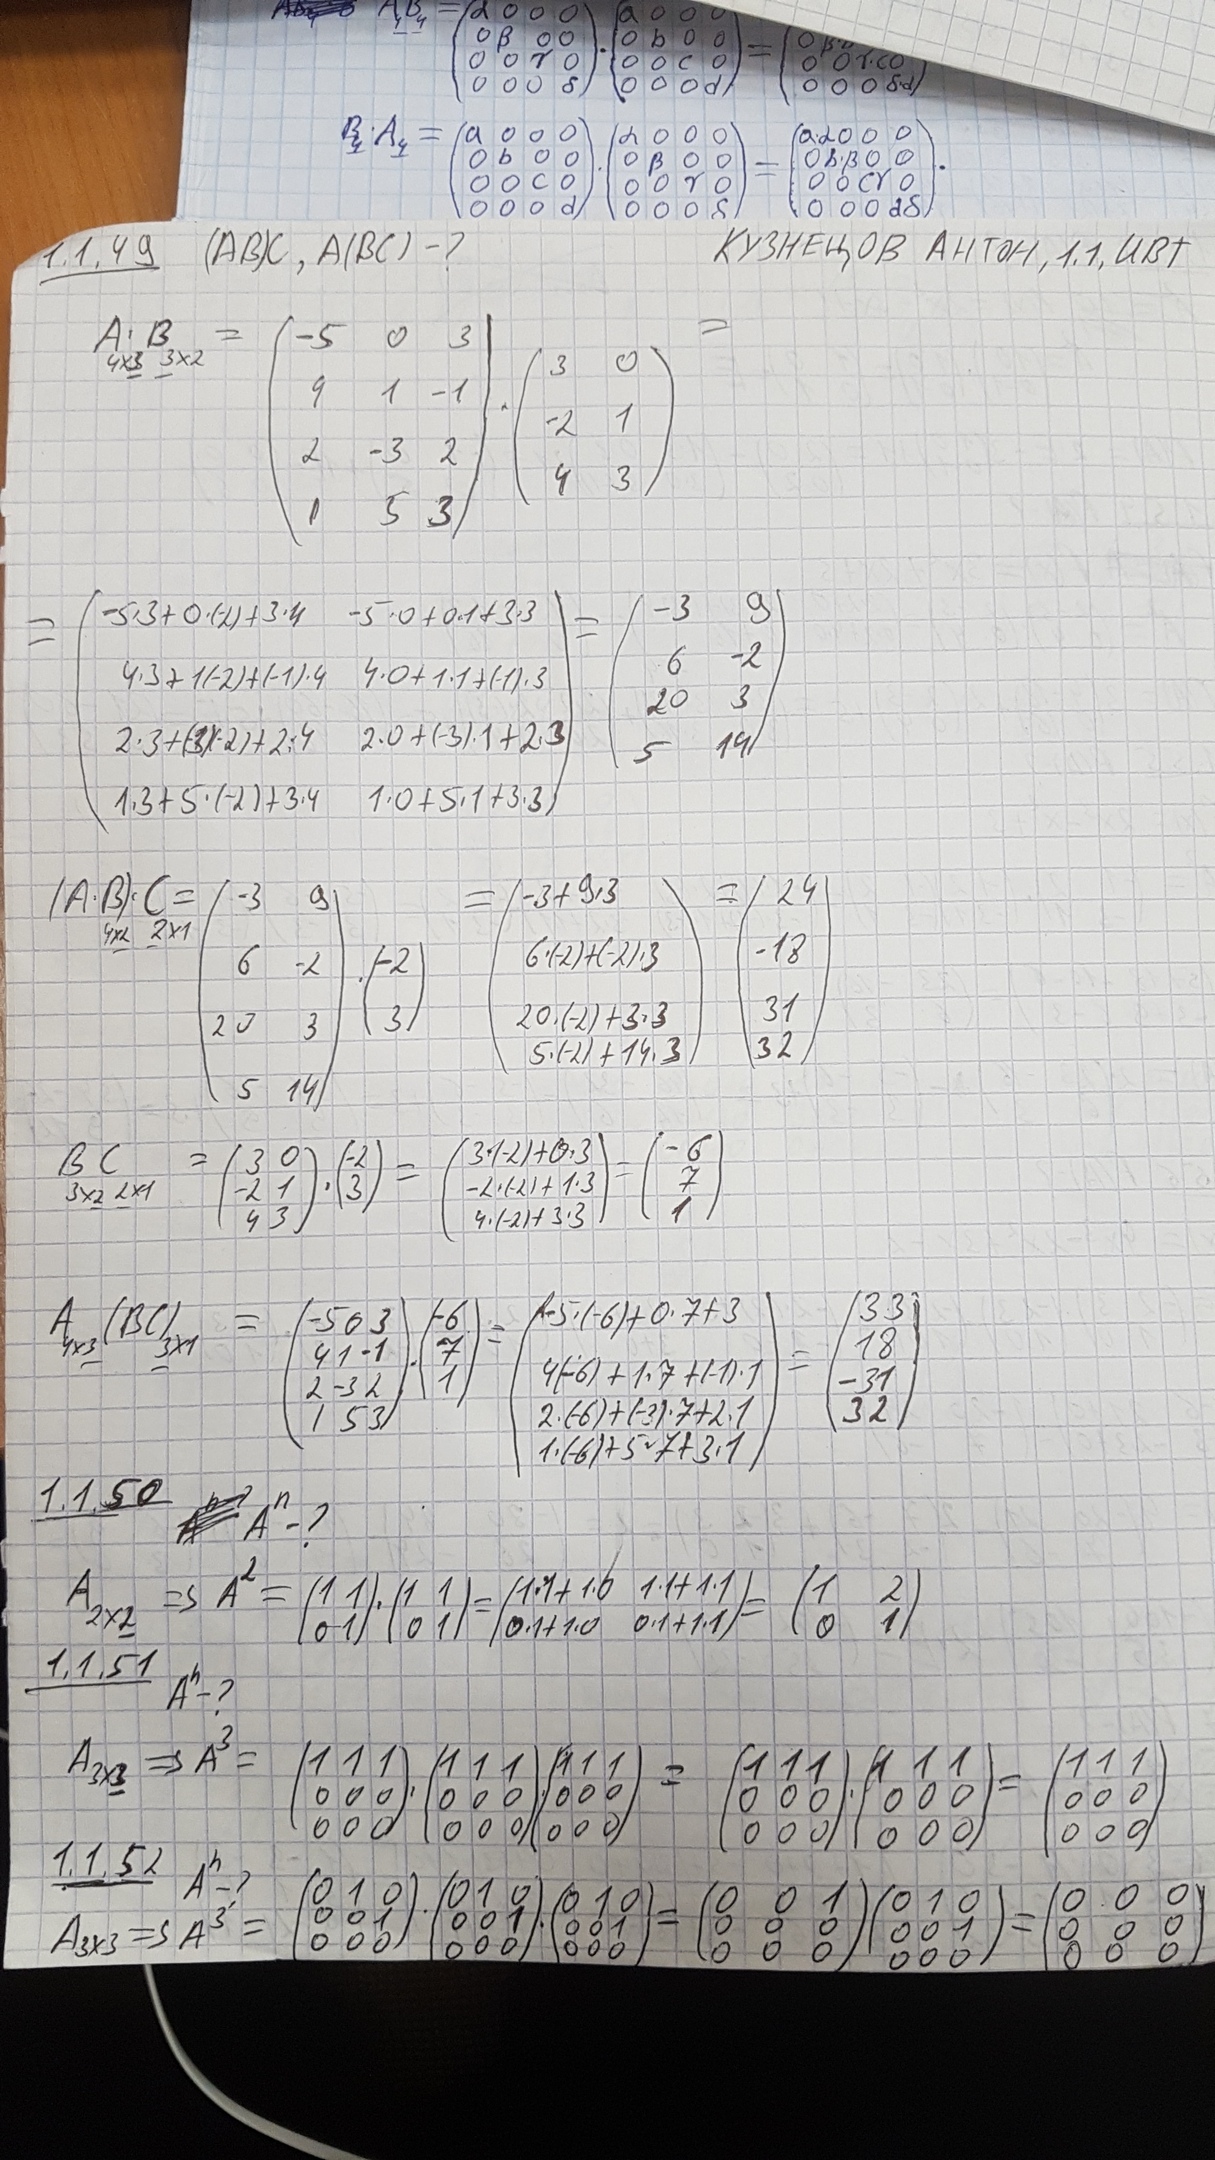 A₄B₄ = (α 0 0 0; 0 β 0 0; 0 0 γ 0; 0 0 0 δ) · (a 0 0 0; 0 b 0 0; 0 0 c 0; 0 0 0 d) =
B₄·A₄ = (a 0 0 0; 0 b 0 0; 0 0 c 0; 0 0 0 d) · (α 0 0 0; 0 β 0 0; 0 0 γ 0; 0 0 0 δ) = (a·α 0 0 0; 0 b·β 0 0; 0 0 cγ 0; 0 0 0 dδ).
1.1.49 (AB)C, A(BC) - ? КУЗНЕЦОВ АНТОН, 1.1, ИВТ
A · B = (-5 0 3; 4 1 -1; 2 -3 2; 1 5 3) · (3 0; -2 1; 4 3) =
4x3 3x2
= (-5·3+0·(-2)+3·4 -5·0+0·1+3·3; 4·3+1(-2)+(-1)·4 4·0+1·1+(-1)·3; 2·3+(-3)(-2)+2·4 2·0+(-3)·1+2·3; 1·3+5·(-2)+3·4 1·0+5·1+3·3) = (-3 9; 6 -2; 20 3; 5 14)
(A·B)·C = (-3 9; 6 -2; 20 3; 5 14) · (-2; 3) = (-3+9·3; 6·(-2)+(-2)·3; 20·(-2)+3·3; 5·(-2)+14·3) = (24; -18; 31; 32)
4x2 2x1
BC = (3 0; -2 1; 4 3) · (-2; 3) = (3·(-2)+0·3; -2·(-2)+1·3; 4·(-2)+3·3) = (-6; 7; 1)
3x2 2x1
A (BC) = (-5 0 3; 4 1 -1; 2 -3 2; 1 5 3) · (-6; 7; 1) = (-5·(-6)+0·7+3; 4(-6)+1·7+(-1)·1; 2·(-6)+(-3)·7+2·1; 1·(-6)+5·7+3·1) = (33; 18; -31; 32)
4x3 3x1
1.1.50
Aⁿ - ?
A₂ₓ₂ => A² = (1 1; 0 1) · (1 1; 0 1) = (1·1+1·0 1·1+1·1; 0·1+1·0 0·1+1·1) = (1 2; 0 1)
1.1.51
Aⁿ - ?
A₃ₓ₃ => A³ = (1 1 1; 0 0 0; 0 0 0) · (1 1 1; 0 0 0; 0 0 0) · (1 1 1; 0 0 0; 0 0 0) = (1 1 1; 0 0 0; 0 0 0) · (1 1 1; 0 0 0; 0 0 0) = (1 1 1; 0 0 0; 0 0 0)
1.1.52 Aⁿ - ?
A₃ₓ₃ => A³ = (0 1 0; 0 0 1; 0 0 0) · (0 1 0; 0 0 1; 0 0 0) · (0 1 0; 0 0 1; 0 0 0) = (0 0 1; 0 0 0; 0 0 0) (0 1 0; 0 0 1; 0 0 0) = (0 0 0; 0 0 0; 0 0 0)